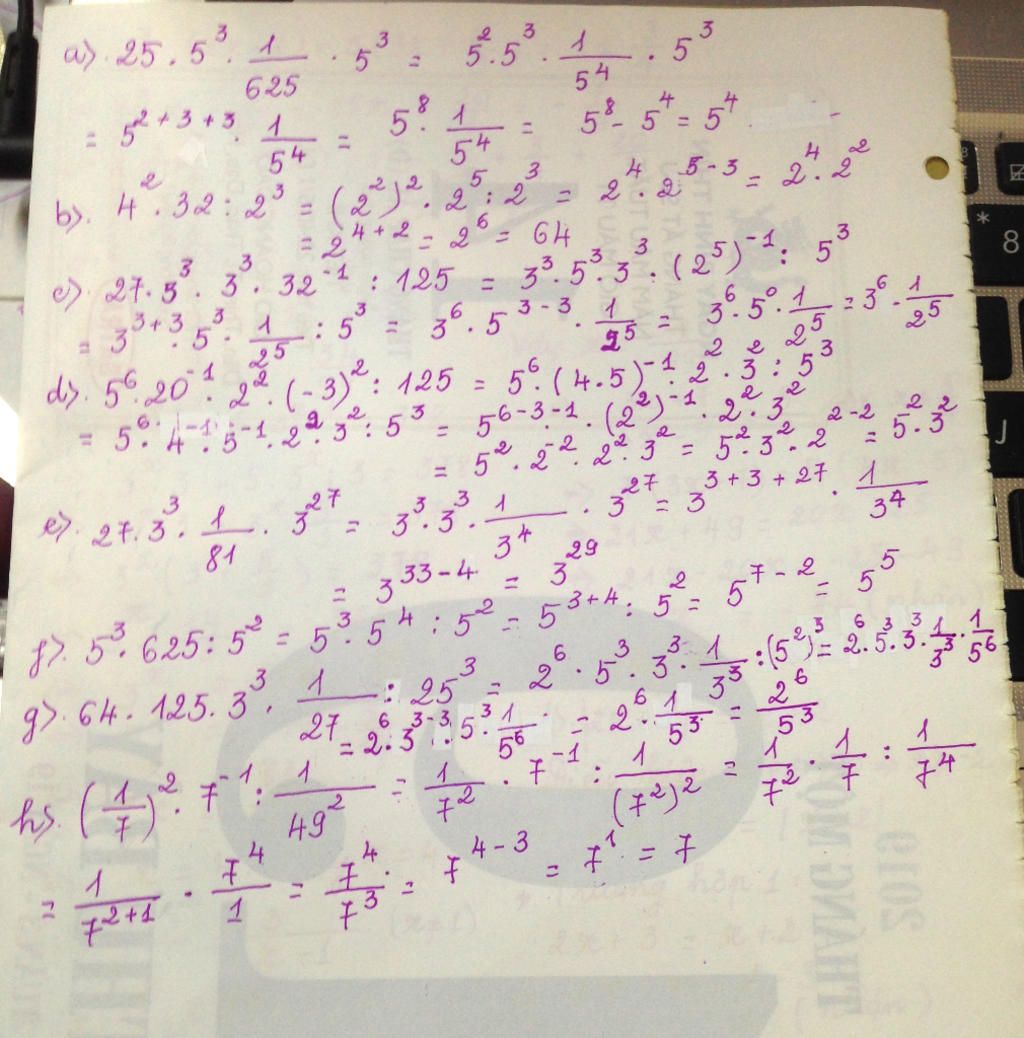 a) 25 . 5³ . 1/625 . 5³ = 5² . 5³ . 1/5⁴ . 5³
= 5²⁺³⁺³ . 1/5⁴ = 5⁸ . 1/5⁴ = 5⁸ - 5⁴ = 5⁴
b) 4² . 32 : 2³ = (2²)² . 2⁵ : 2³ = 2⁴ . 2⁵⁻³ = 2⁴ . 2²
= 2⁴⁺² = 2⁶ = 64
c) 27 . 5³ . 3³ . 32⁻¹ : 125 = 3³ . 5³ . 3³ . (2⁵)⁻¹ : 5³
= 3³⁺³ . 5³ . 1/2⁵ : 5³ = 3⁶ . 5³⁻³ . 1/2⁵ = 3⁶ . 5⁰ . 1/2⁵ = 3⁶ . 1/2⁵
d) 5⁶ . 20⁻¹ . 2² . (-3)² : 125 = 5⁶ . (4 . 5)⁻¹ . 2² . 3² : 5³
= 5⁶ . 4⁻¹ . 5⁻¹ . 2² . 3² : 5³ = 5⁶⁻³⁻¹ . (2²)⁻¹ . 2² . 3²
= 5² . 2⁻² . 2² . 3² = 5² . 3² . 2²⁻² = 5² . 3²
e) 27 . 3³ . 1/81 . 3²⁷ = 3³ . 3³ . 1/3⁴ . 3²⁷ = 3³⁺³⁺²⁷ . 1/3⁴
= 3³³⁻⁴ = 3²⁹
f) 5³ . 625 : 5² = 5³ . 5⁴ : 5² = 5³⁺⁴ : 5² = 5⁷⁻² = 5⁵
g) 64 . 125 . 3³ . 1/27 : 25³ = 2⁶ . 5³ . 3³ . 1/3³ : (5²)³ = 2⁶ . 5³ . 3³ . 1/3³ . 1/5⁶
= 2⁶ . 3³⁻³ . 5³ . 1/5⁶ = 2⁶ . 1/5³ = 2⁶/5³
h) (1/7)² . 7⁻¹ : 1/49² = 1/7² . 7⁻¹ : 1/(7²)² = 1/7² . 1/7 : 1/7⁴
= 1/7²⁺¹ . 7⁴/1 = 7⁴/7³ = 7⁴⁻³ = 7¹ = 7